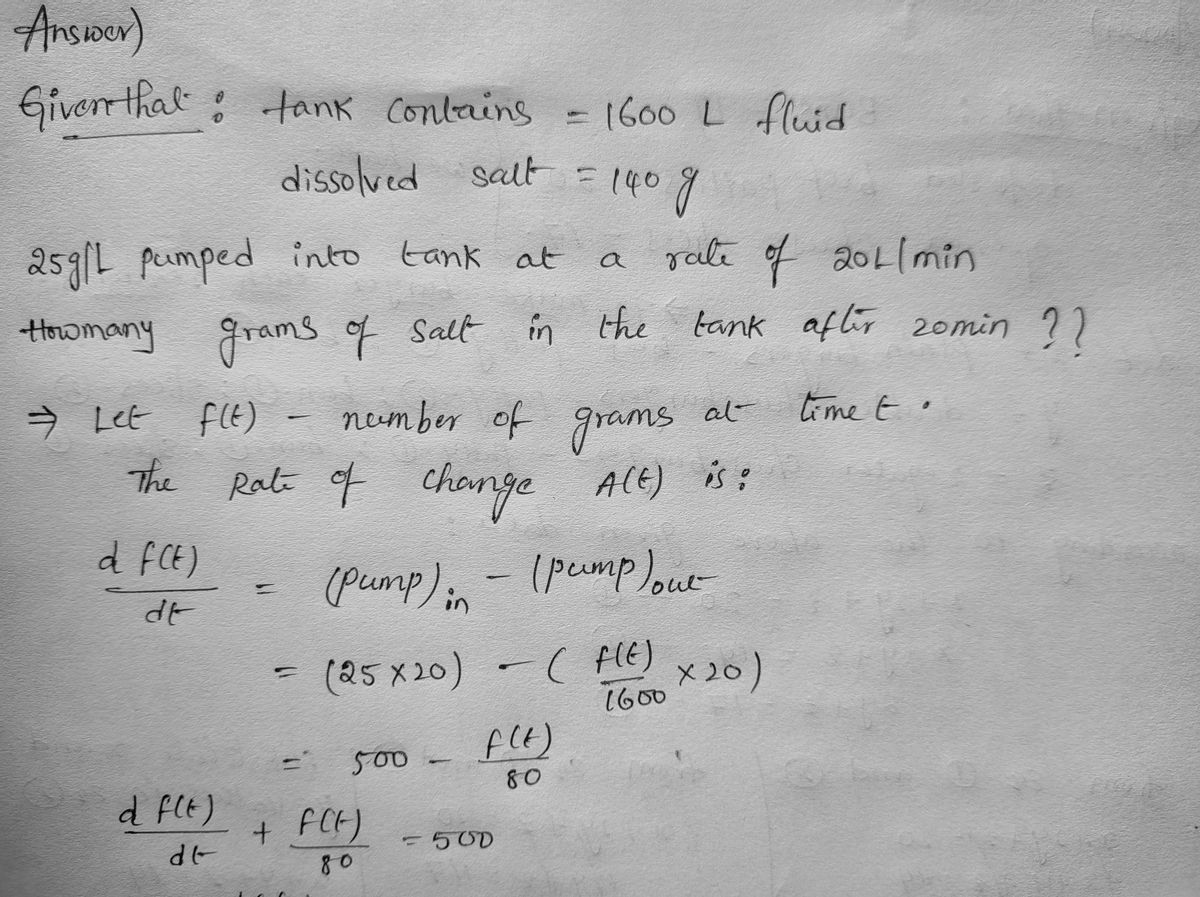 Answer)
Given that : tank contains = 1600 L fluid
dissolved salt = 140 g
25g/L pumped into tank at a rate of 20L/min
How many grams of salt in the tank after 20min ??
⇒ Let f(t) - number of grams at time t.
The Rate of change A(t) is :
d f(t)/dt = (pump)in - (pump)out
= (25 × 20) - ( f(t)/1600 × 20 )
= 500 - f(t)/80
d f(t)/dt + f(t)/80 = 500